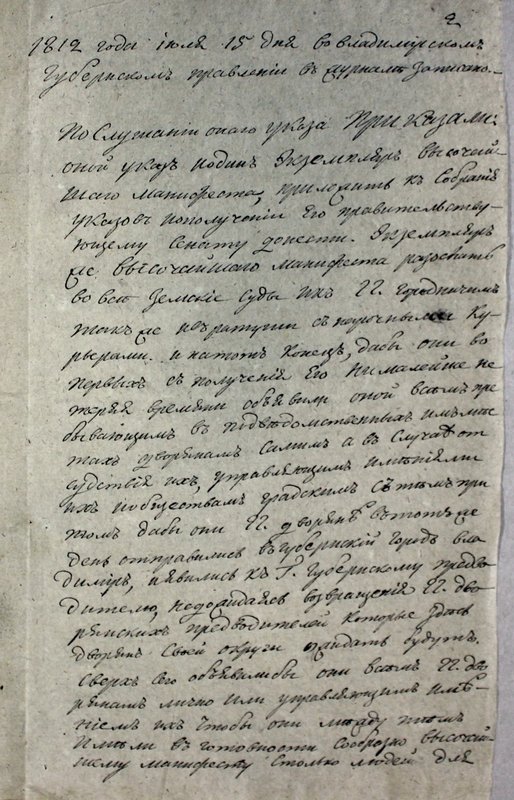 2
1812 года июля 15 дня во владимирскомъ
Губернскомъ правленіи въ журналѣ записано
По слушаніи онаго указа Приказали:
оной указъ иодинъ Экземпляръ высочай
шаго манифеста, приложить къ собранію
указовъ иополученіи Его правительству-
ющему Сенату донести. Экземпляръ
же высочайшаго манифеста разослать
во всѣ земскіе суды икъ ГГ. городничимъ
такъ же съ нарочными Ку-
рьерами. и натотъ конецъ, дабы они во
первыхъ съ полученія Его ни малейше не
теряя времяни объявили оной всѣмъ пре
бывающимъ въ подвѣдомственныхъ имъ мѣс
тахъ дворянамъ самимъ а въ случаѣ от
судствія ихъ, управляющимъ имѣніями
ихъ иобществамъ градскимъ съ тѣмъ при
томъ дабы они ГГ. дворянѣ вътотъ же
день отправились въгубернскій городъ вла
димиръ, иявились къ Г. Губернскому предво
дителю, недожидаясь возвращенія ГГ. дво
рянскихъ предводителей которые здѣсь
дворянъ своей округи ожидать будутъ.
сверхъ сего объявилибы они всѣмъ ГГ. дво
рянамъ лично или управляющимъ имѣ-
ніемъ ихъ чтобы они между тѣмъ
имѣли въ готовности сообразно высочай
шему манифесту столько людей для